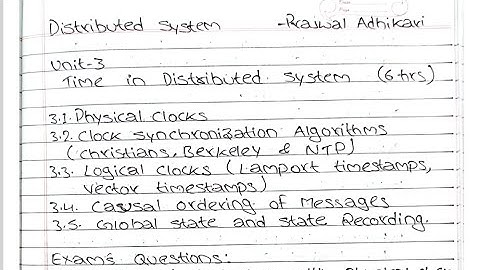 Distributed System -Praswal Adhikari
Unit-3
Time in Distributed System (6 hrs)
3.1. Physical Clocks
3.2. Clock Synchronization Algorithms
(Christians, Berkeley & NTP)
3.3. Logical Clocks (Lamport timestamps,
Vector timestamps)
3.4. Causal ordering of Messages
3.5. Global state and state Recording.
Exam's Questions: